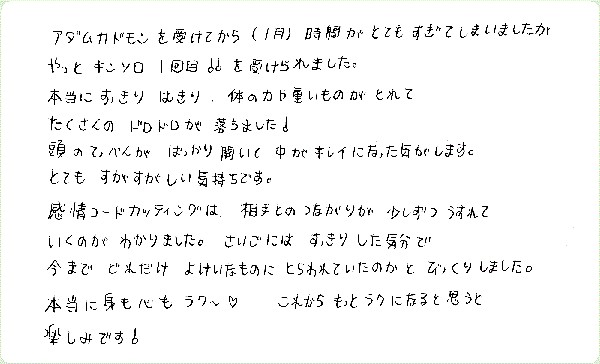 アダムカドモンを受けてから（1月）時間がとてもすぎてしまいましたが
やっとキンソロ1回目 を受けられました。
本当にすっきり はっきり、体の力や重いものがとれて
たくさんのドロドロが落ちました！
頭のてっぺんがぱっかり開いて中がキレイになった気がします。
とてもすがすがしい気持ちです。
感情コードカッティングは、相手とのつながりが少しずつうすれて
いくのがわかりました。さいごにはすっきりした気分で
今までどれだけよけいなものにとらわれていたのかとびっくりしました。
本当に身も心もラク〜♡ これからもっとラクになると思うと
楽しみです！